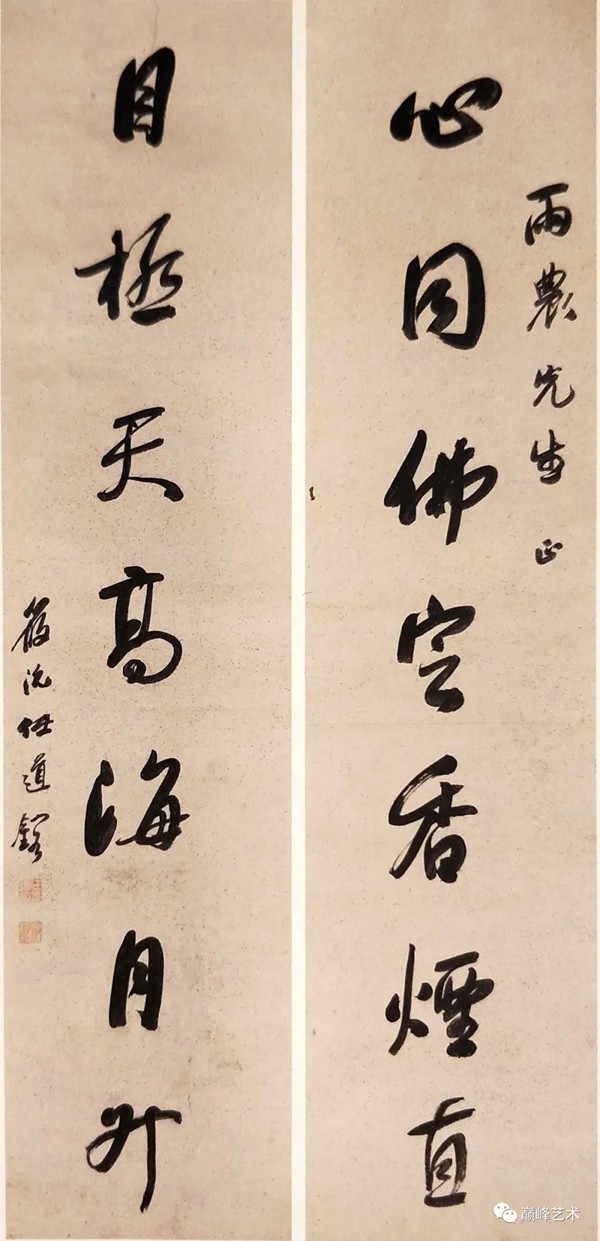 雨農先生正
心同佛定香煙直
目極天高海月升
筱沅任道鎔
巅峰艺术